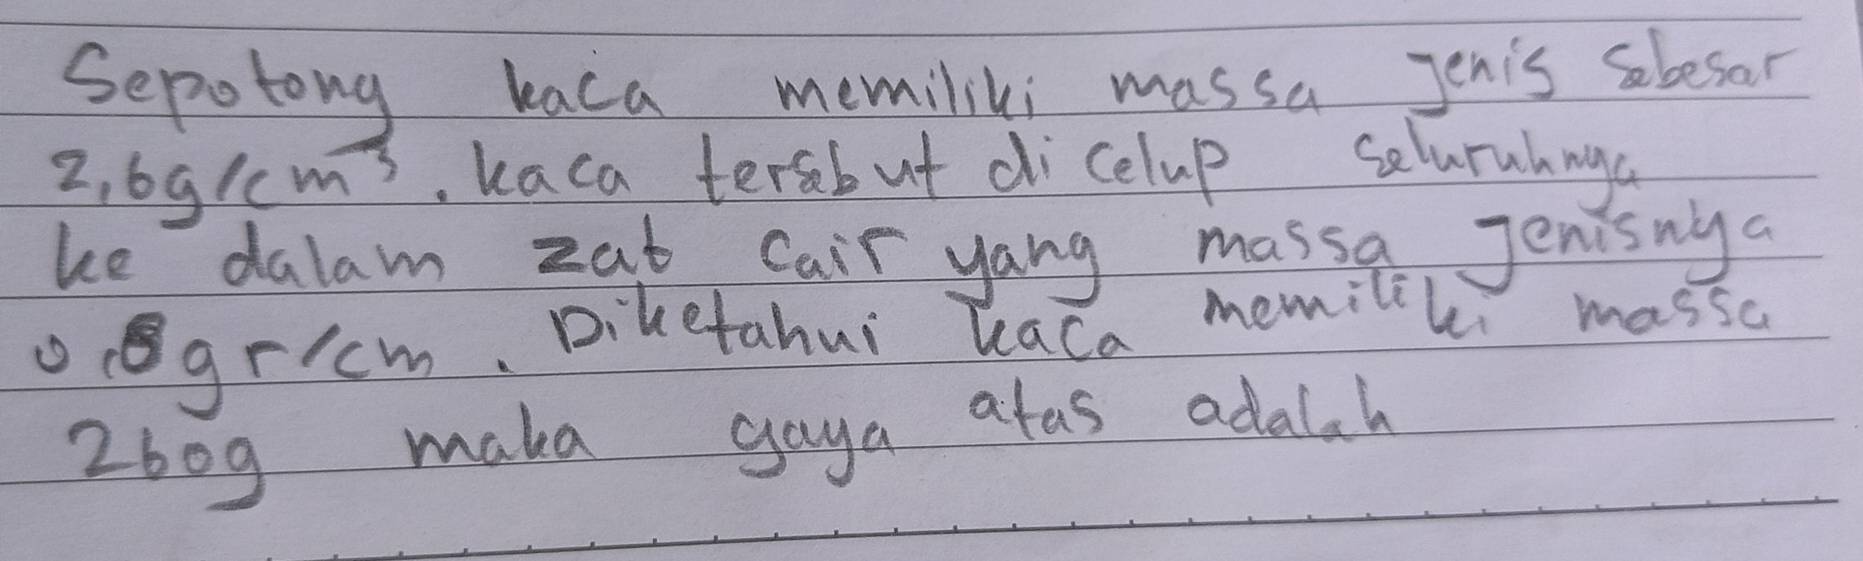 Sepotong kaca memiliki massa jenis sebesar
2,6g/cm³. kaca tersebut di celup seluruhnya
ke dalam zat cair yang massa jenisnya
0,8gr/cm. Diketahui kaca memiliki massa
260g maka gaya atas adalah